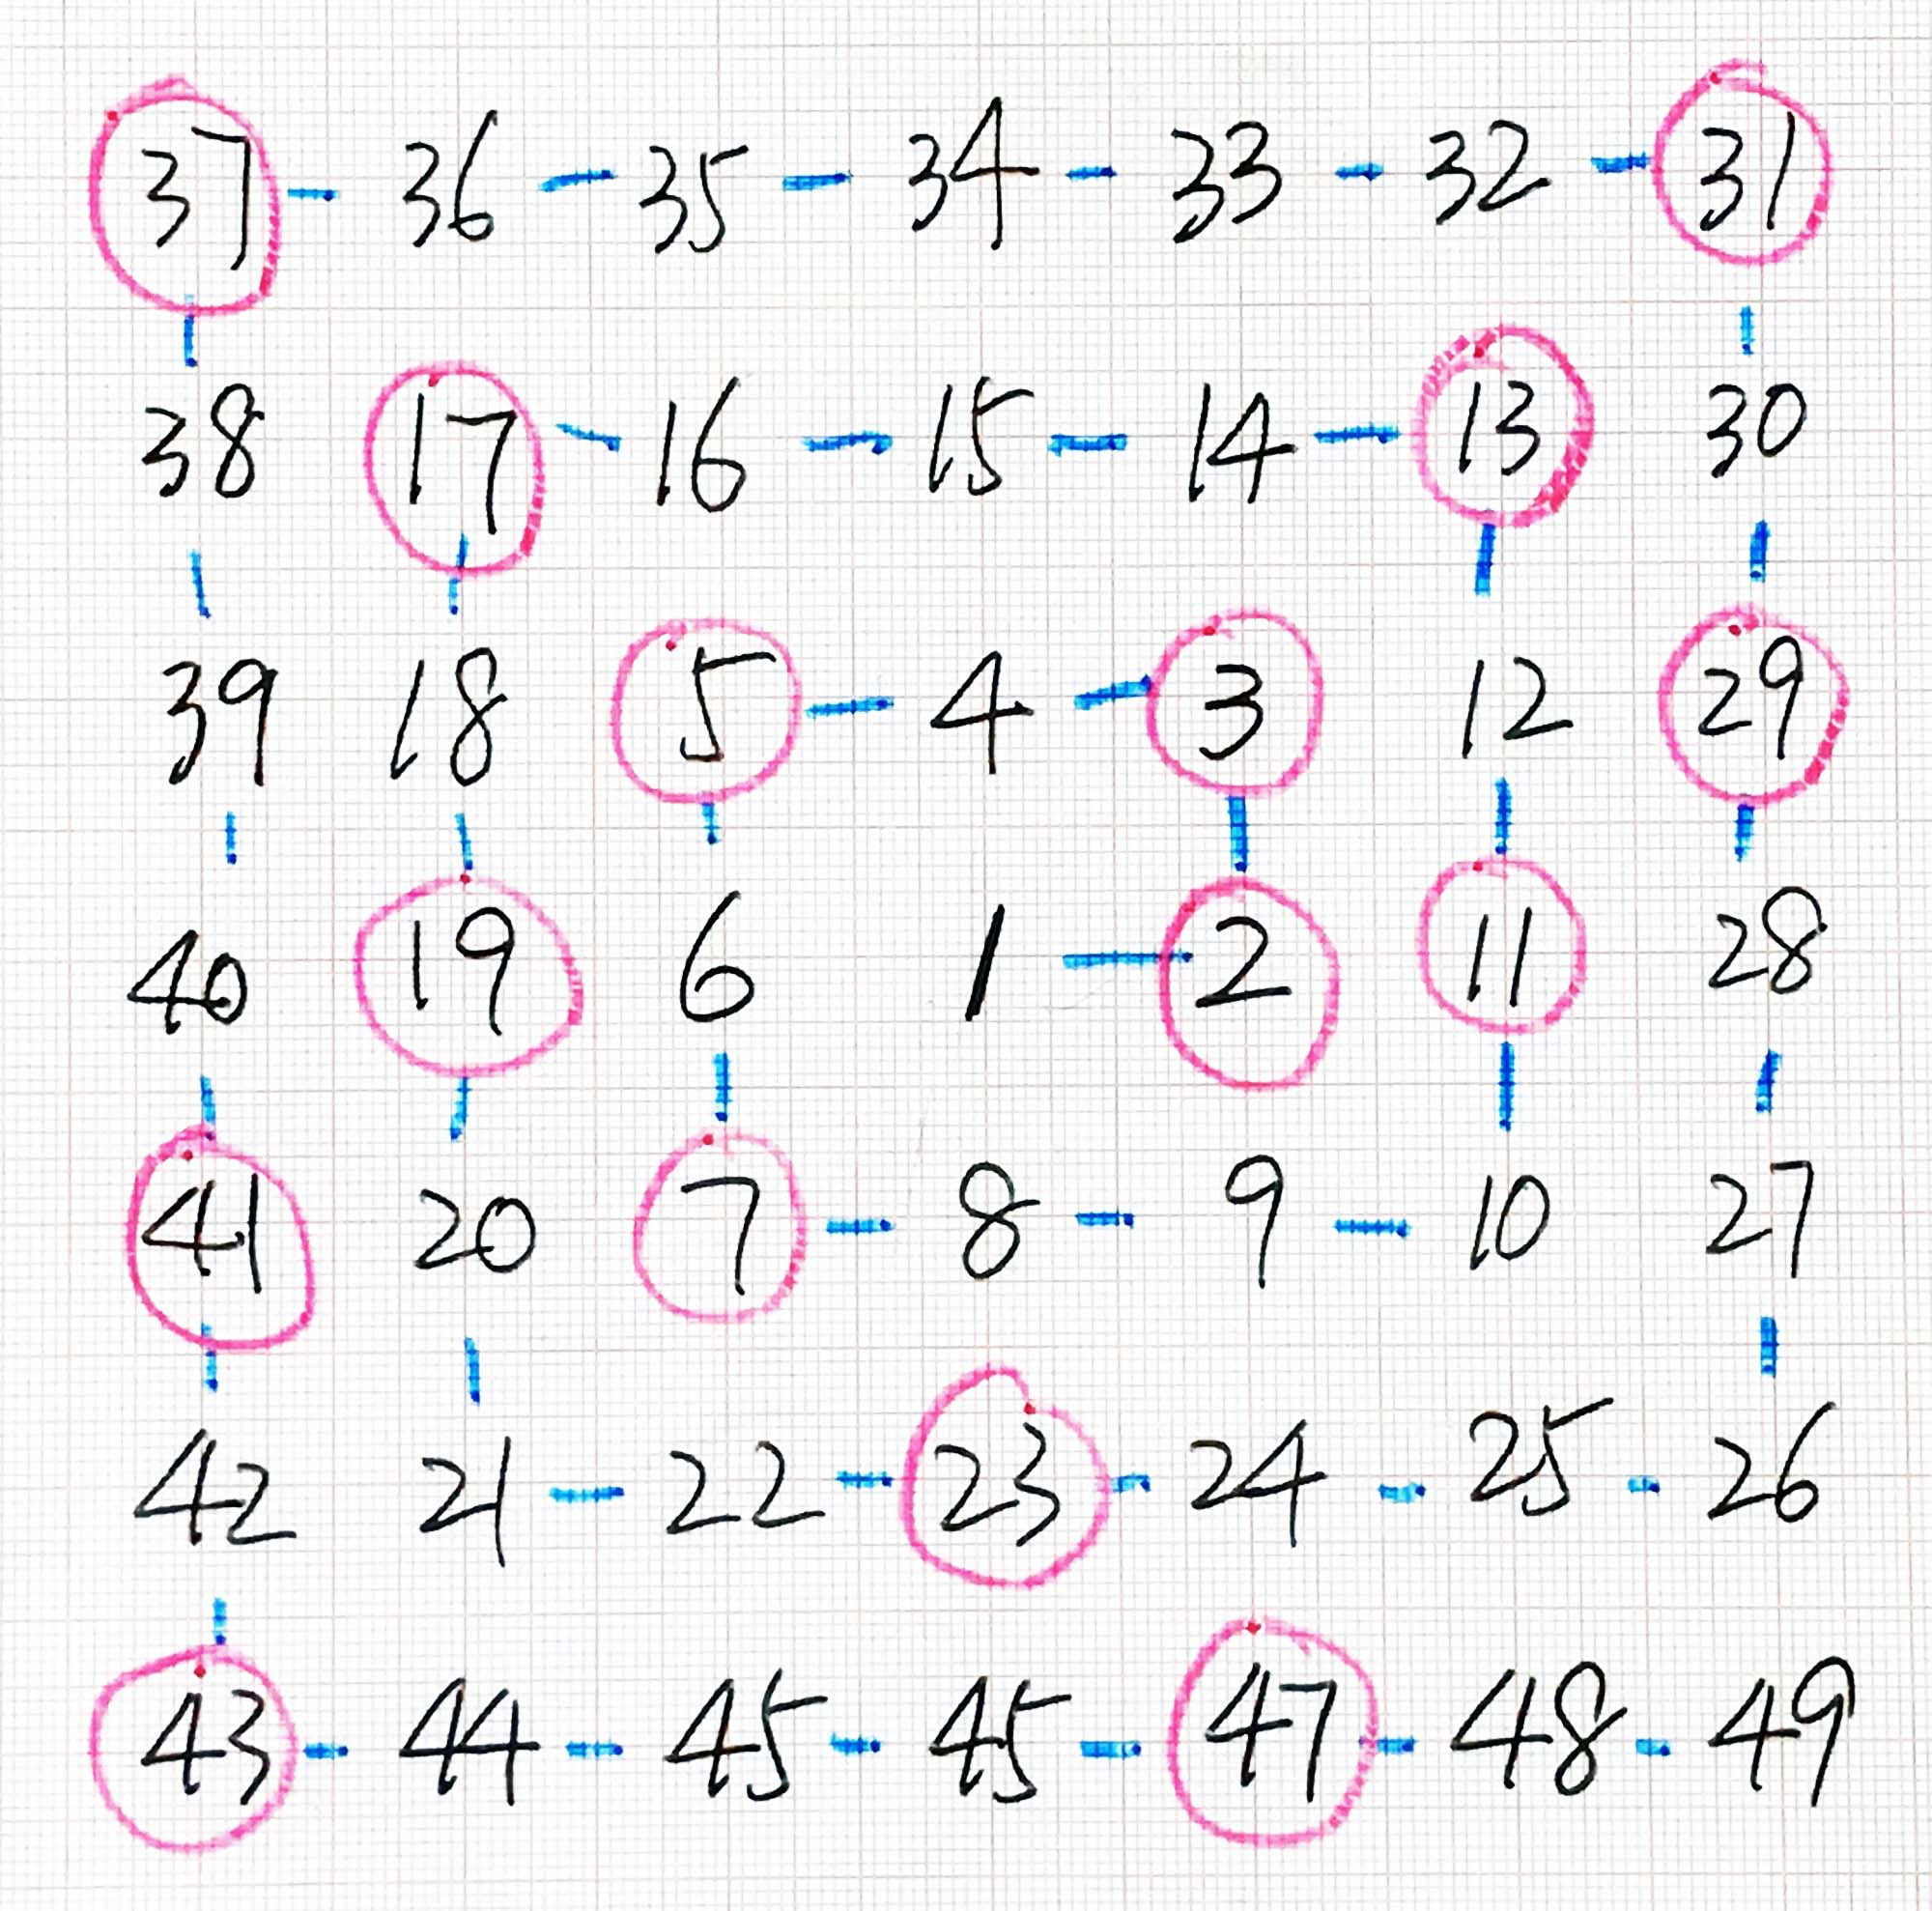 37 - 36 - 35 - 34 - 33 - 32 - 31
38 17 - 16 - 15 - 14 - 13 30
39 18 5 - 4 - 3 12 29
40 19 6 1 - 2 11 28
41 20 7 - 8 - 9 - 10 27
42 21 - 22 - 23 - 24 - 25 - 26
43 - 44 - 45 - 45 - 47 - 48 - 49